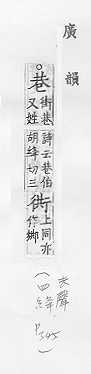 廣韻
。巷街巷詩云巷伯又姓胡絳切三衖上同亦作鄉
(去聲四絳 P345)